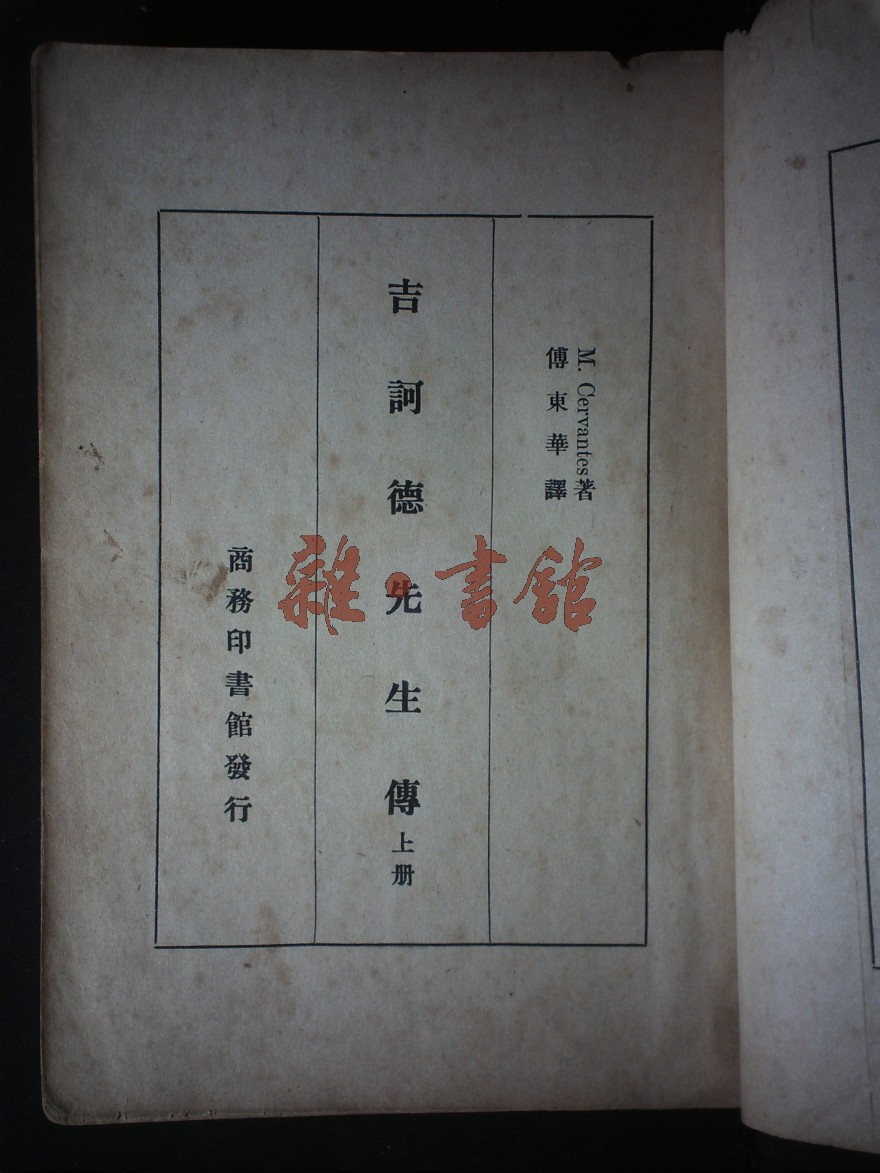 M. Cervantes著
傅東華譯
吉訶德先生傳上册
商務印書館發行
雜·書館